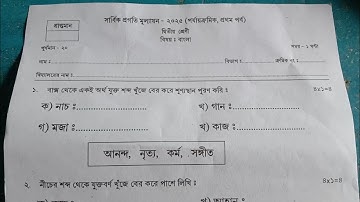 প্রাপ্তমান
সার্বিক প্রগতি মূল্যায়ন - ২০২৫ (পর্যায়ক্রমিক, প্রথম পর্ব)
দ্বিতীয় শ্রেণী
বিষয় : বাংলা
পূর্ণমান - ২০
সময় - ১ ঘন্টা
নাম : বিভাগ : ক্রমিক নং :
বিদ্যালয়ের নাম :
১. বাক্স থেকে একই অর্থ যুক্ত শব্দ খুঁজে বের করে শূণ্যস্থান পূরণ করি : ৪x১=৪
ক) নাচ : খ) গান :
গ) মজা : খ) কাজ :
আনন্দ, নৃত্য, কর্ম, সঙ্গীত
২. নীচের শব্দ থেকে যুক্তবর্ণ খুঁজে বের করে পাশে লিখি : ৪x১=৪